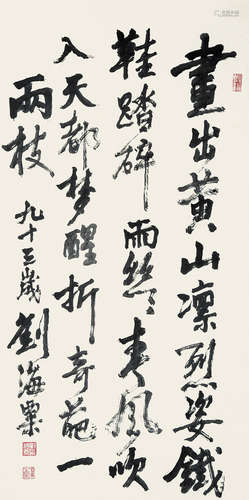 畫出黃山凜烈姿鐵
鞋踏碎雨絲絲春風吹
入天都夢醒折奇葩一
兩枝
九十三歲劉海粟